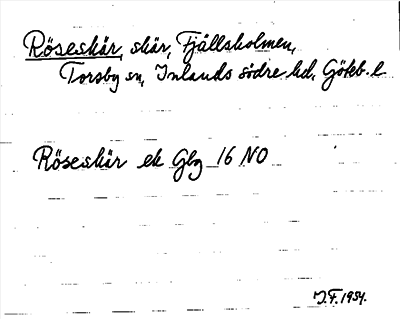 Röseskär, skär, Fjällsholmen,
Torsby sn, Inlands södre hd, Göteb. l
Röseskär ek Gbg 16 NO
J.F. 1934.